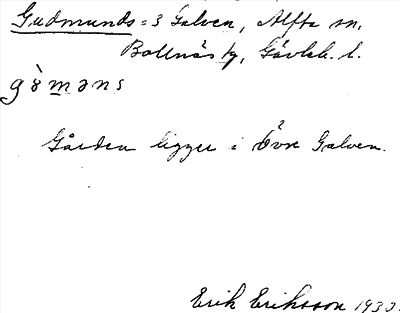 Gudmunds = 3 Galven, Alfta sn,
Bollnäs tg, Gävleb. l.
gòməns
Gården ligger i Övre Galven.
Erik Eriksson 1933.